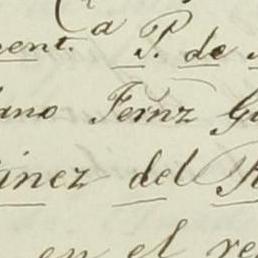 a
ent. P. de
ano Fernz G
inez del R
en el re